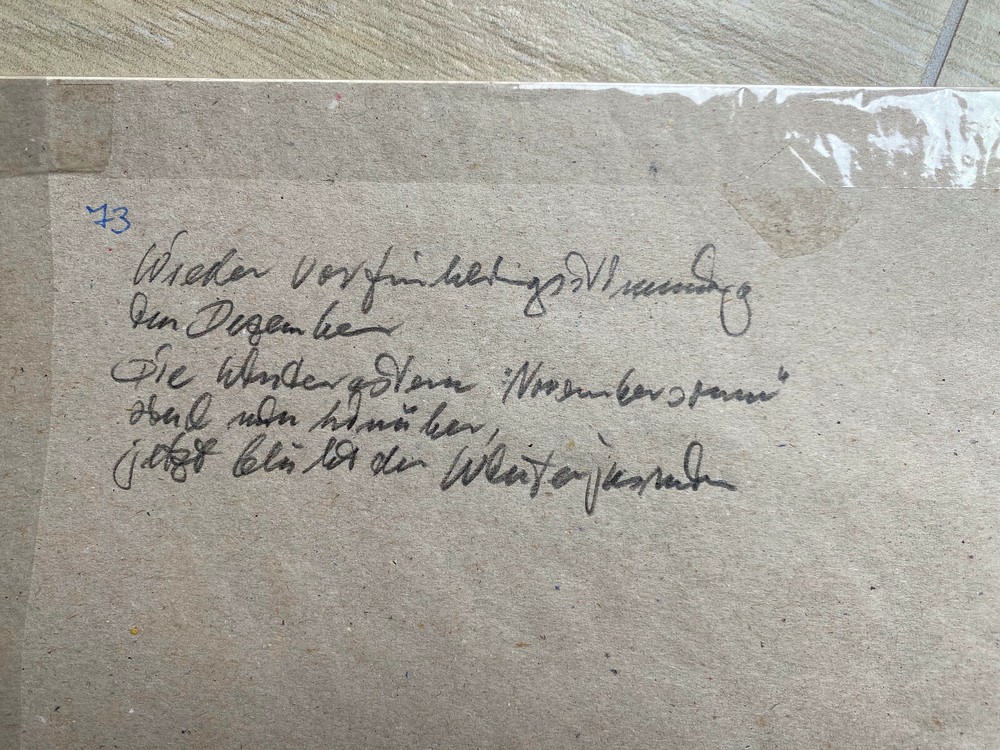 73
Wieder Vorfrühlingsstimmung
im Dezember
Die Winterastern "Novembersonne"
sind nun hinüber,
jetzt blüht der Winterjasmin